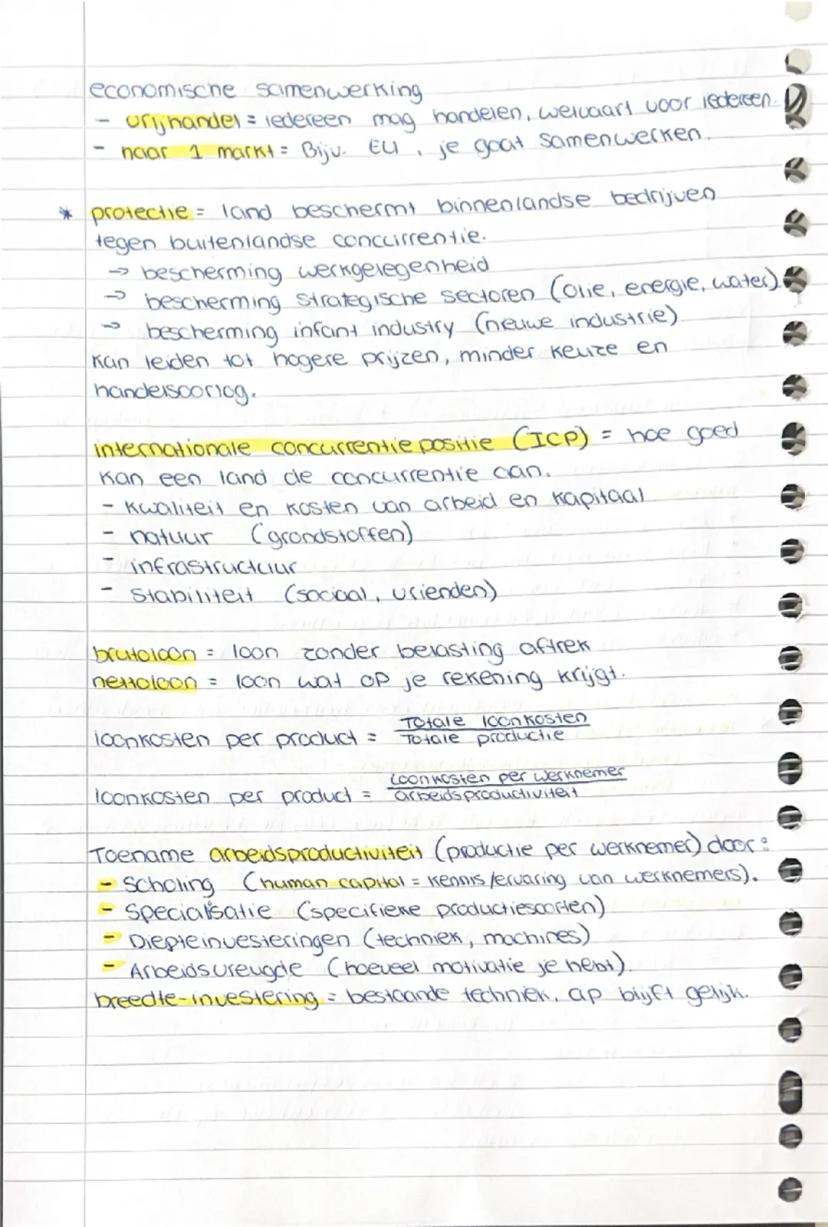 economische samenwerking
- vrijhandel = iedereen mag handelen, welvaart voor iedereen.
- naar 1 markt = Bijv. EU, je gaat samenwerken.
* protectie = land beschermt binnenlandse bedrijven
tegen buitenlandse concurrentie.
→ bescherming werkgelegenheid
→ bescherming strategische sectoren (olie, energie, water).
→ bescherming infant industry (nieuwe industrie)
kan leiden tot hogere prijzen, minder keuze en
handelsoorlog.
internationale concurrentiepositie (ICP) = hoe goed
kan een land de concurrentie aan.
- kwaliteit en kosten van arbeid en kapitaal
- natuur (grondstoffen)
- infrastructuur
- stabiliteit (sociaal, vrienden)
brutoloon = loon zonder belasting aftrek
nettoloon = loon wat op je rekening krijgt.
loonkosten per product = Totale loonkosten / Totale productie
loonkosten per product = Loonkosten per werknemer / arbeidsproductiviteit
Toename arbeidsproductiviteit (productie per werknemer) door:
- Scholing (human capital = kennis/ervaring van werknemers).
- Specialisatie (specifieke productiesoorten)
- Diepteinvesteringen (techniek, machines)
- Arbeidsvreugde (hoeveel motivatie je hebt).
breedte-investering = bestaande techniek, ap blijft gelijk.